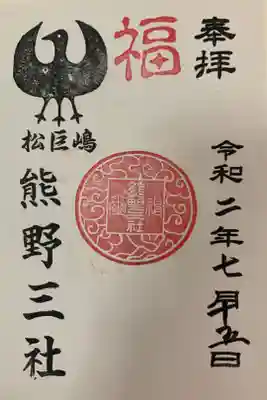 奉拝
令和二年七月廿五日
福
松巨嶋
熊野三社
熊野三社